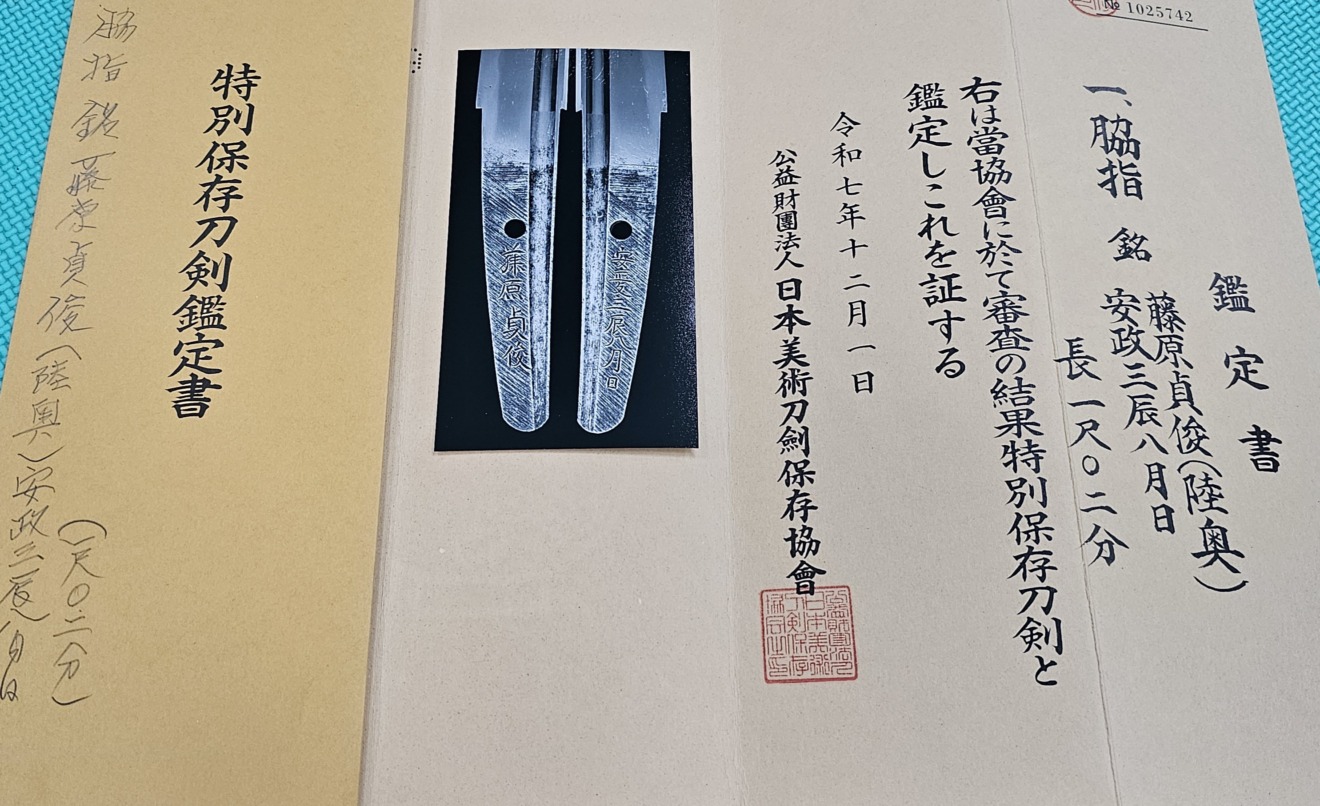 № 1025742
鑑定書
一、脇指 銘 藤原貞俊（陸奥）
安政三辰八月日
長一尺〇二分
右は當協會に於て審査の結果特別保存刀剣と
鑑定しこれを証する
令和七年十二月一日
公益財團法人日本美術刀劍保存協會
安政三辰八月日
藤原貞俊
特別保存刀剣鑑定書
脇指 銘 藤原貞俊（陸奥）安政三辰八月日
（一尺〇二分）